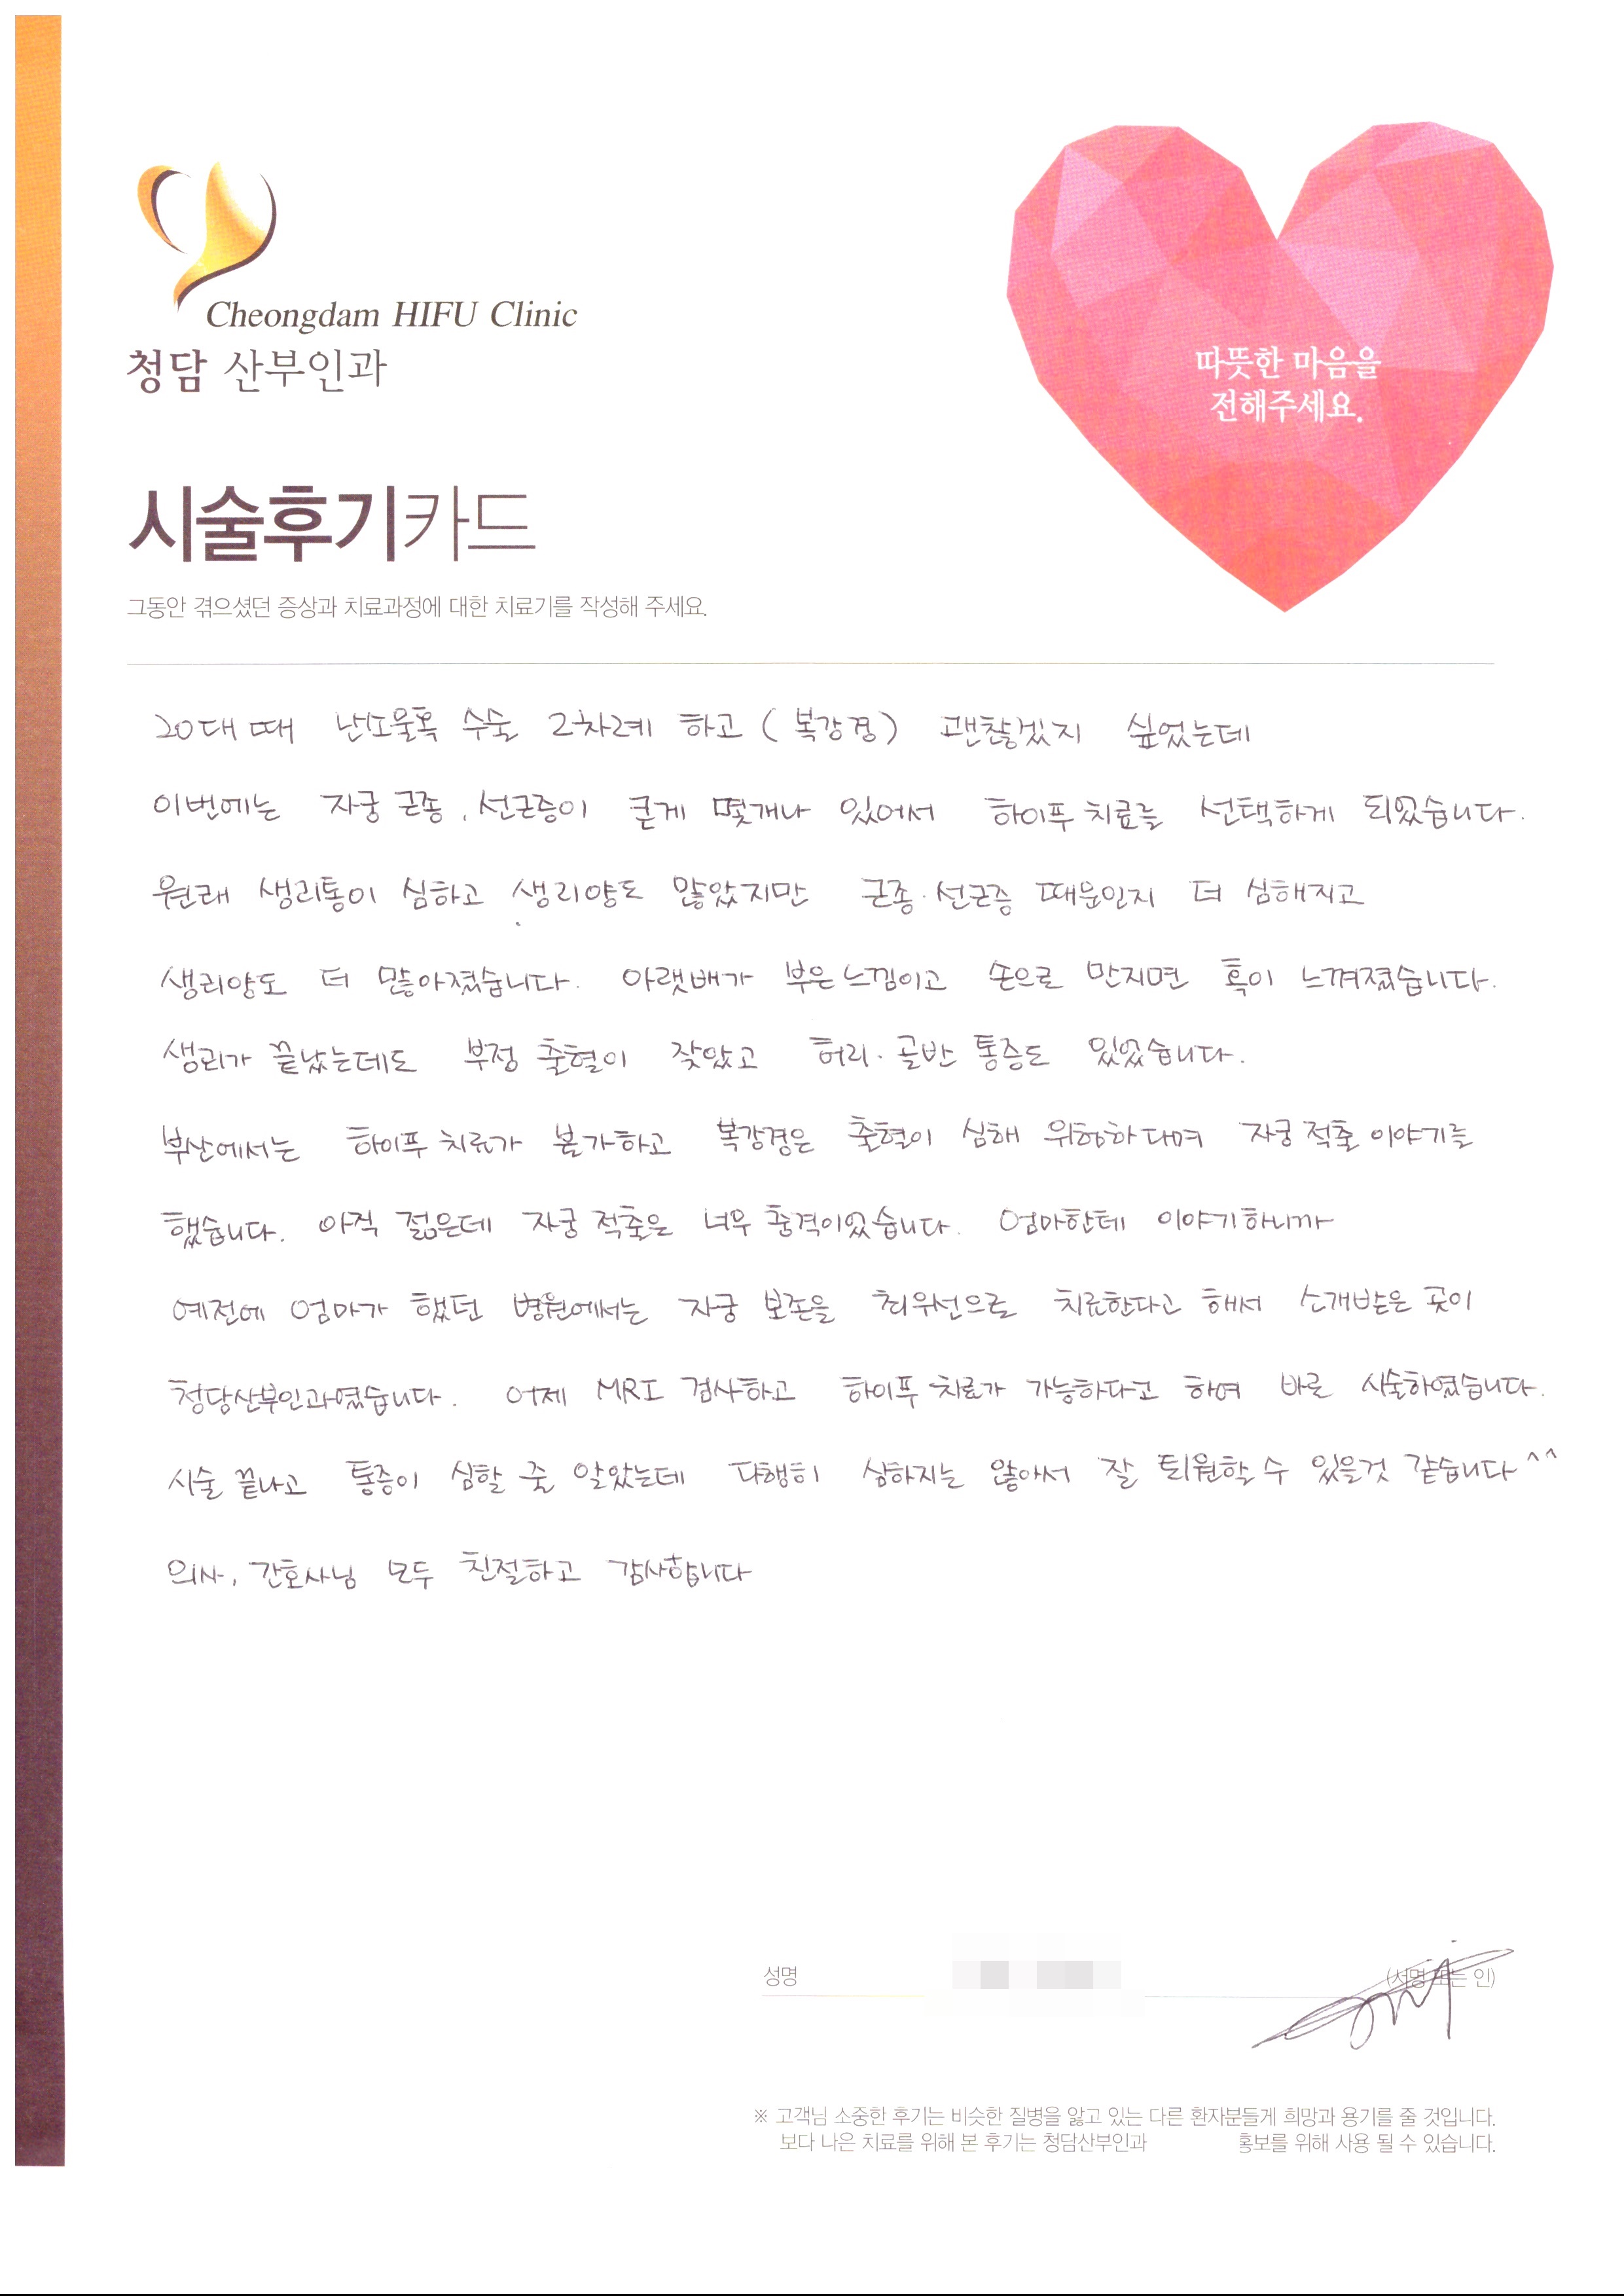 Cheongdam HIFU Clinic
청담 산부인과
따뜻한 마음을
전해주세요.
시술후기카드
그동안 겪으셨던 증상과 치료과정에 대한 치료기를 작성해 주세요.
20대 때 난소물혹 수술 2차례 하고 (복강경) 괜찮겠지 싶었는데
이번에는 자궁 근종, 선근증이 큰게 몇개나 있어서 하이푸 치료를 선택하게 되었습니다.
원래 생리통이 심하고 생리양도 많았지만 근종·선근증 때문인지 더 심해지고
생리양도 더 많아졌습니다. 아랫배가 부은느낌이고 손으로 만지면 혹이 느껴졌습니다.
생리가 끝났는데도 부정 출혈이 잦았고 허리·골반 통증도 있었습니다.
부산에서는 하이푸 치료가 불가하고 복강경은 출혈이 심해 위험하다며 자궁적출 이야기를
했습니다. 아직 젊은데 자궁적출은 너무 충격이었습니다. 엄마한테 이야기하니까
예전에 엄마가 했던 병원에서는 자궁 보존을 최우선으로 치료한다고 해서 소개받은 곳이
청담산부인과였습니다. 어제 MRI 검사하고 하이푸 치료가 가능하다고 하여 바로 시술하였습니다.
시술 끝나고 통증이 심할 줄 알았는데 다행히 심하지는 않아서 잘 퇴원할 수 있을것 같습니다^^
의사, 간호사님 모두 친절하고 감사합니다
성명 (서명 또는 인)
※ 고객님 소중한 후기는 비슷한 질병을 앓고 있는 다른 환자분들게 희망과 용기를 줄 것입니다.
보다 나은 치료를 위해 본 후기는 청담산부인과 홍보를 위해 사용 될 수 있습니다.